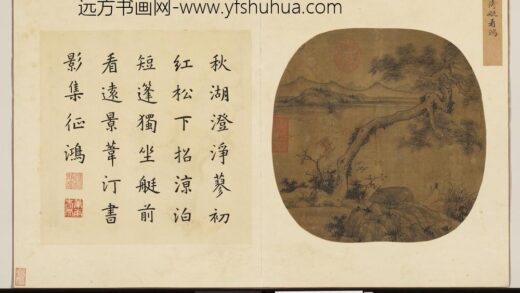 远方书画网-www.yfshuhua.com
秋湖澄淨蓼初
紅松下招涼泊
短篷獨坐艇前
看遠景葦汀書
影集征鴻